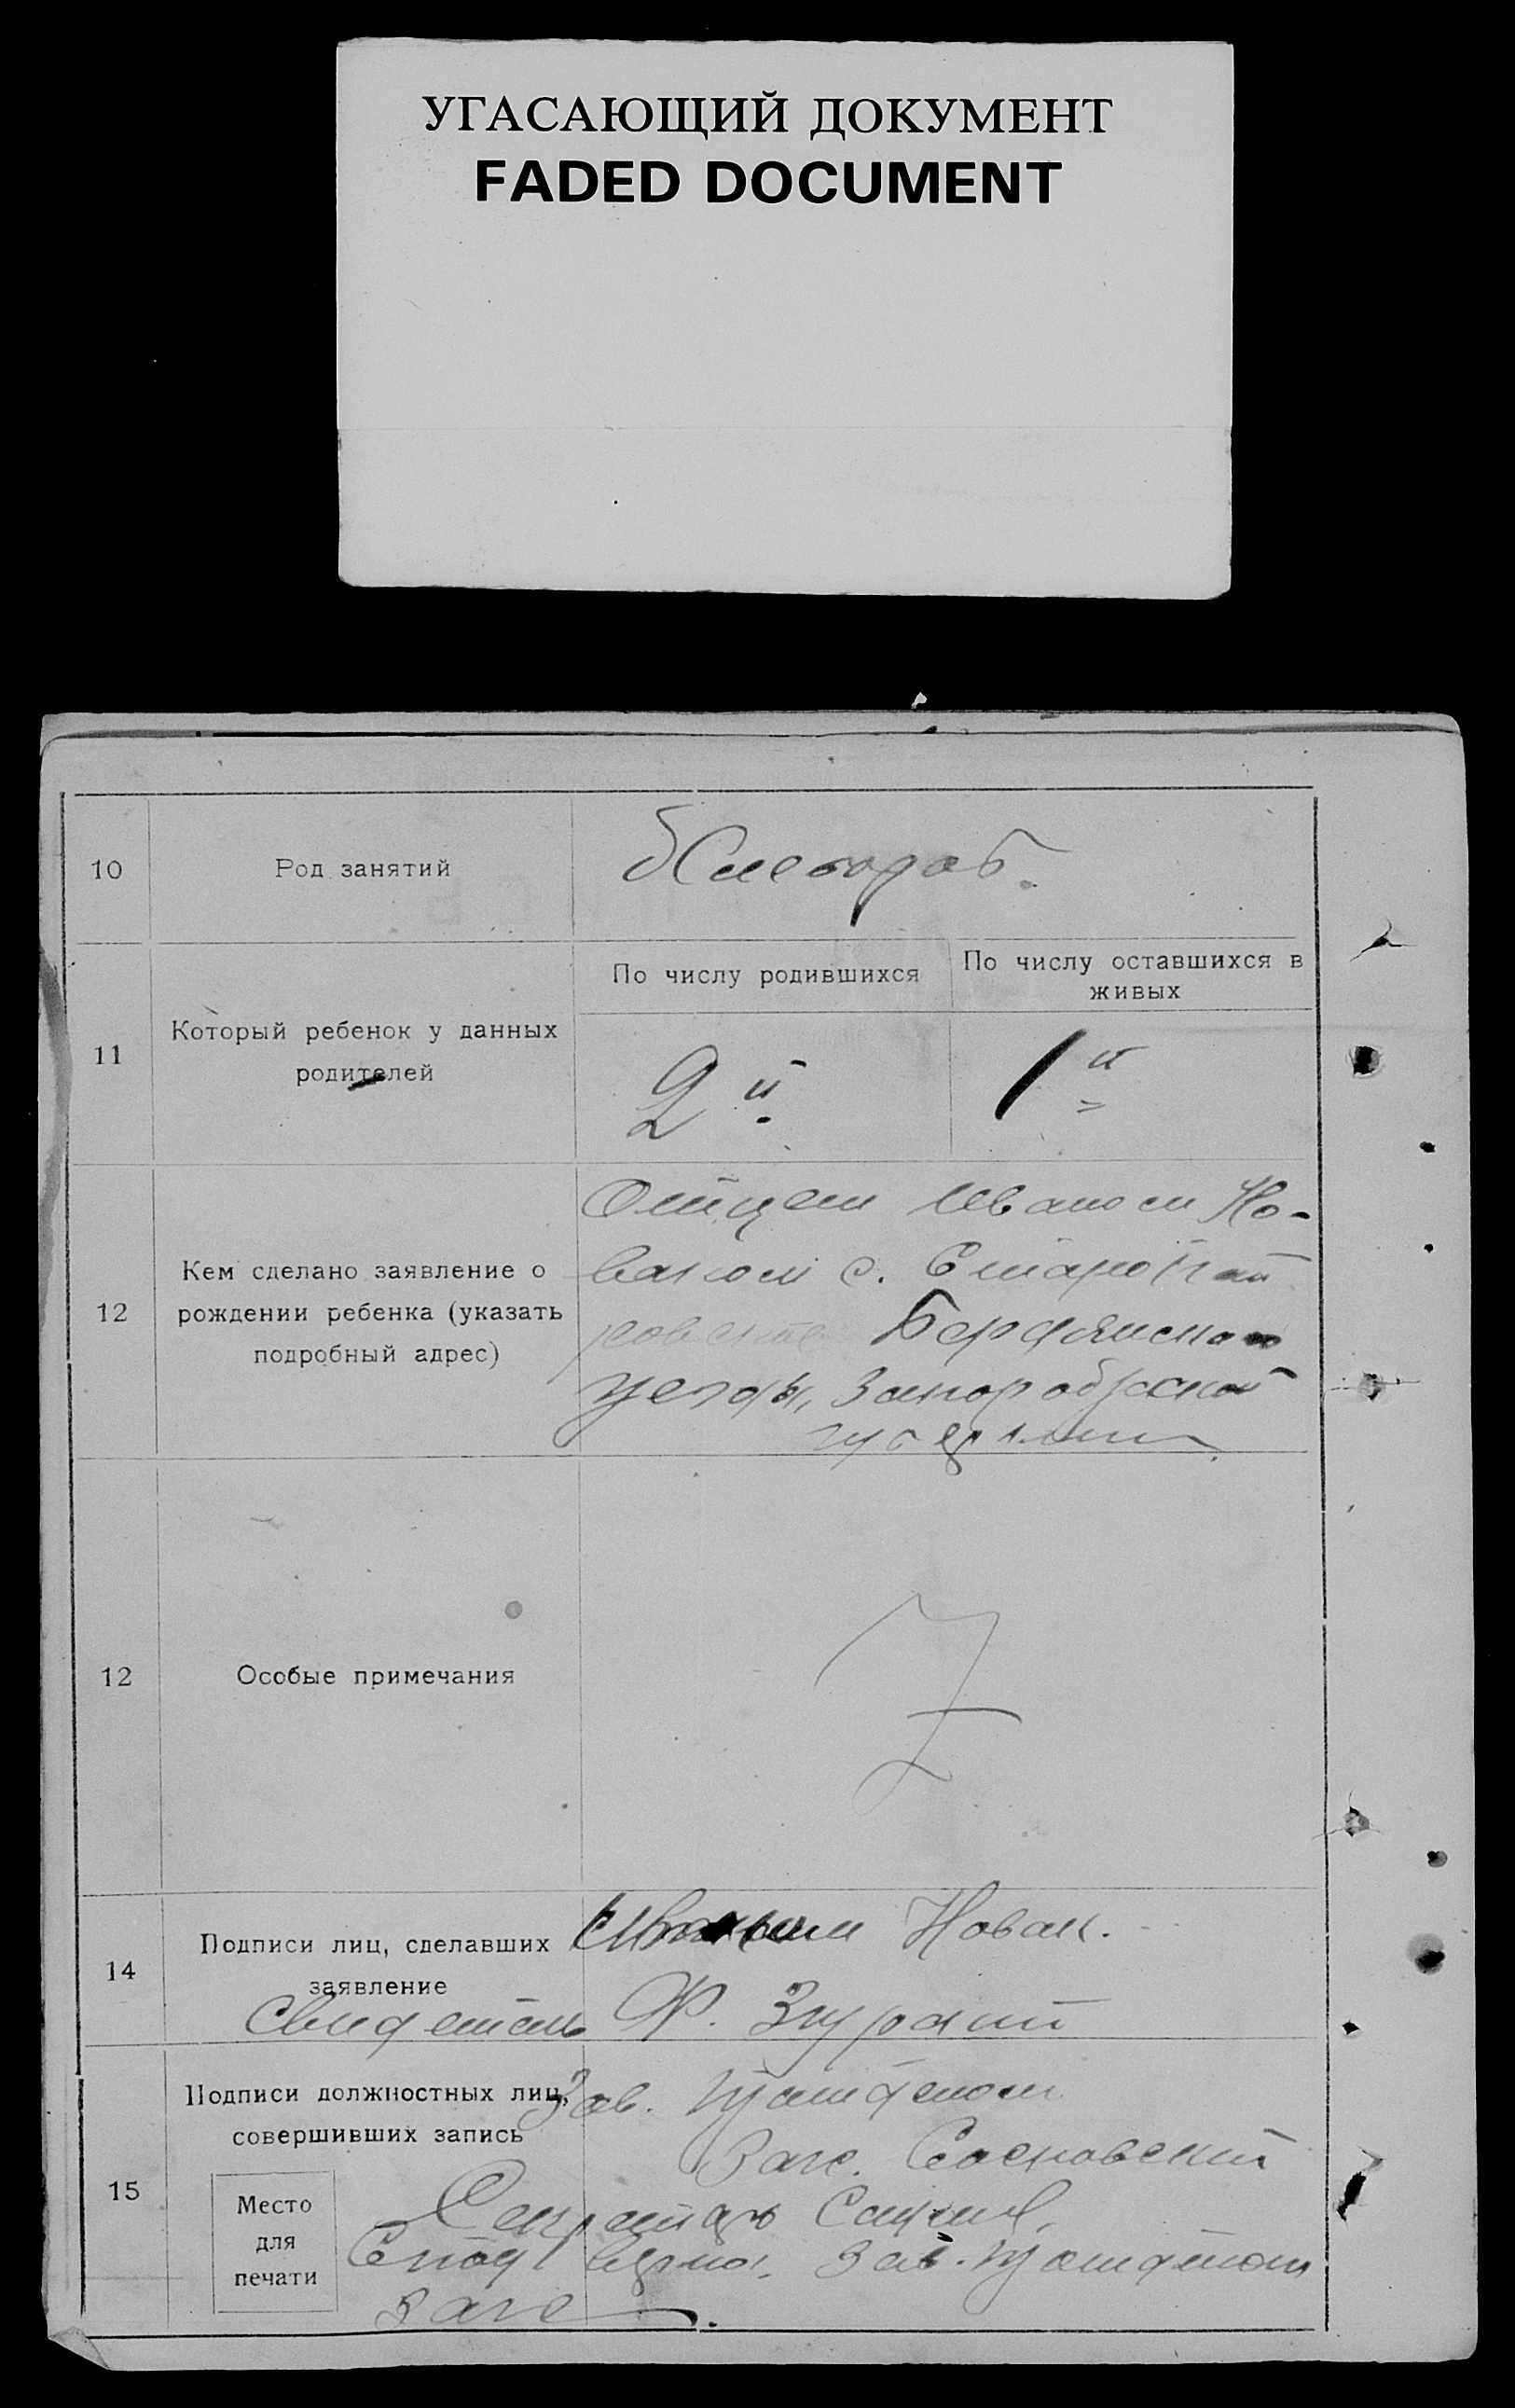 УГАСАЮЩИЙ ДОКУМЕНТ
FADED DOCUMENT
10
Род занятий
Хлебороб.
11
Который ребенок у данных
родителей
По числу родившихся
По числу оставшихся в
живых
2й
1й
12
Кем сделано заявление о
рождении ребенка (указать
подробный адрес)
Отцем Иваном Но-
ваком с.
Бердянского
уезда, Запорожской
губернии
12
Особые примечания
14
Подписи лиц, сделавших
заявление
Новак.
Свидетель Ф.
15
Подписи должностных лиц,
совершивших запись
Зав.
Загс. Сосновский
Место
для
печати
Секретарь
верно. Зав.
Загс